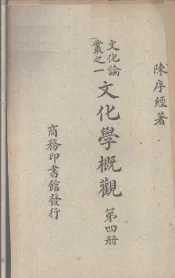 陳序經著
文化論
叢之一
文化學概觀 第四冊
商務印書館發行